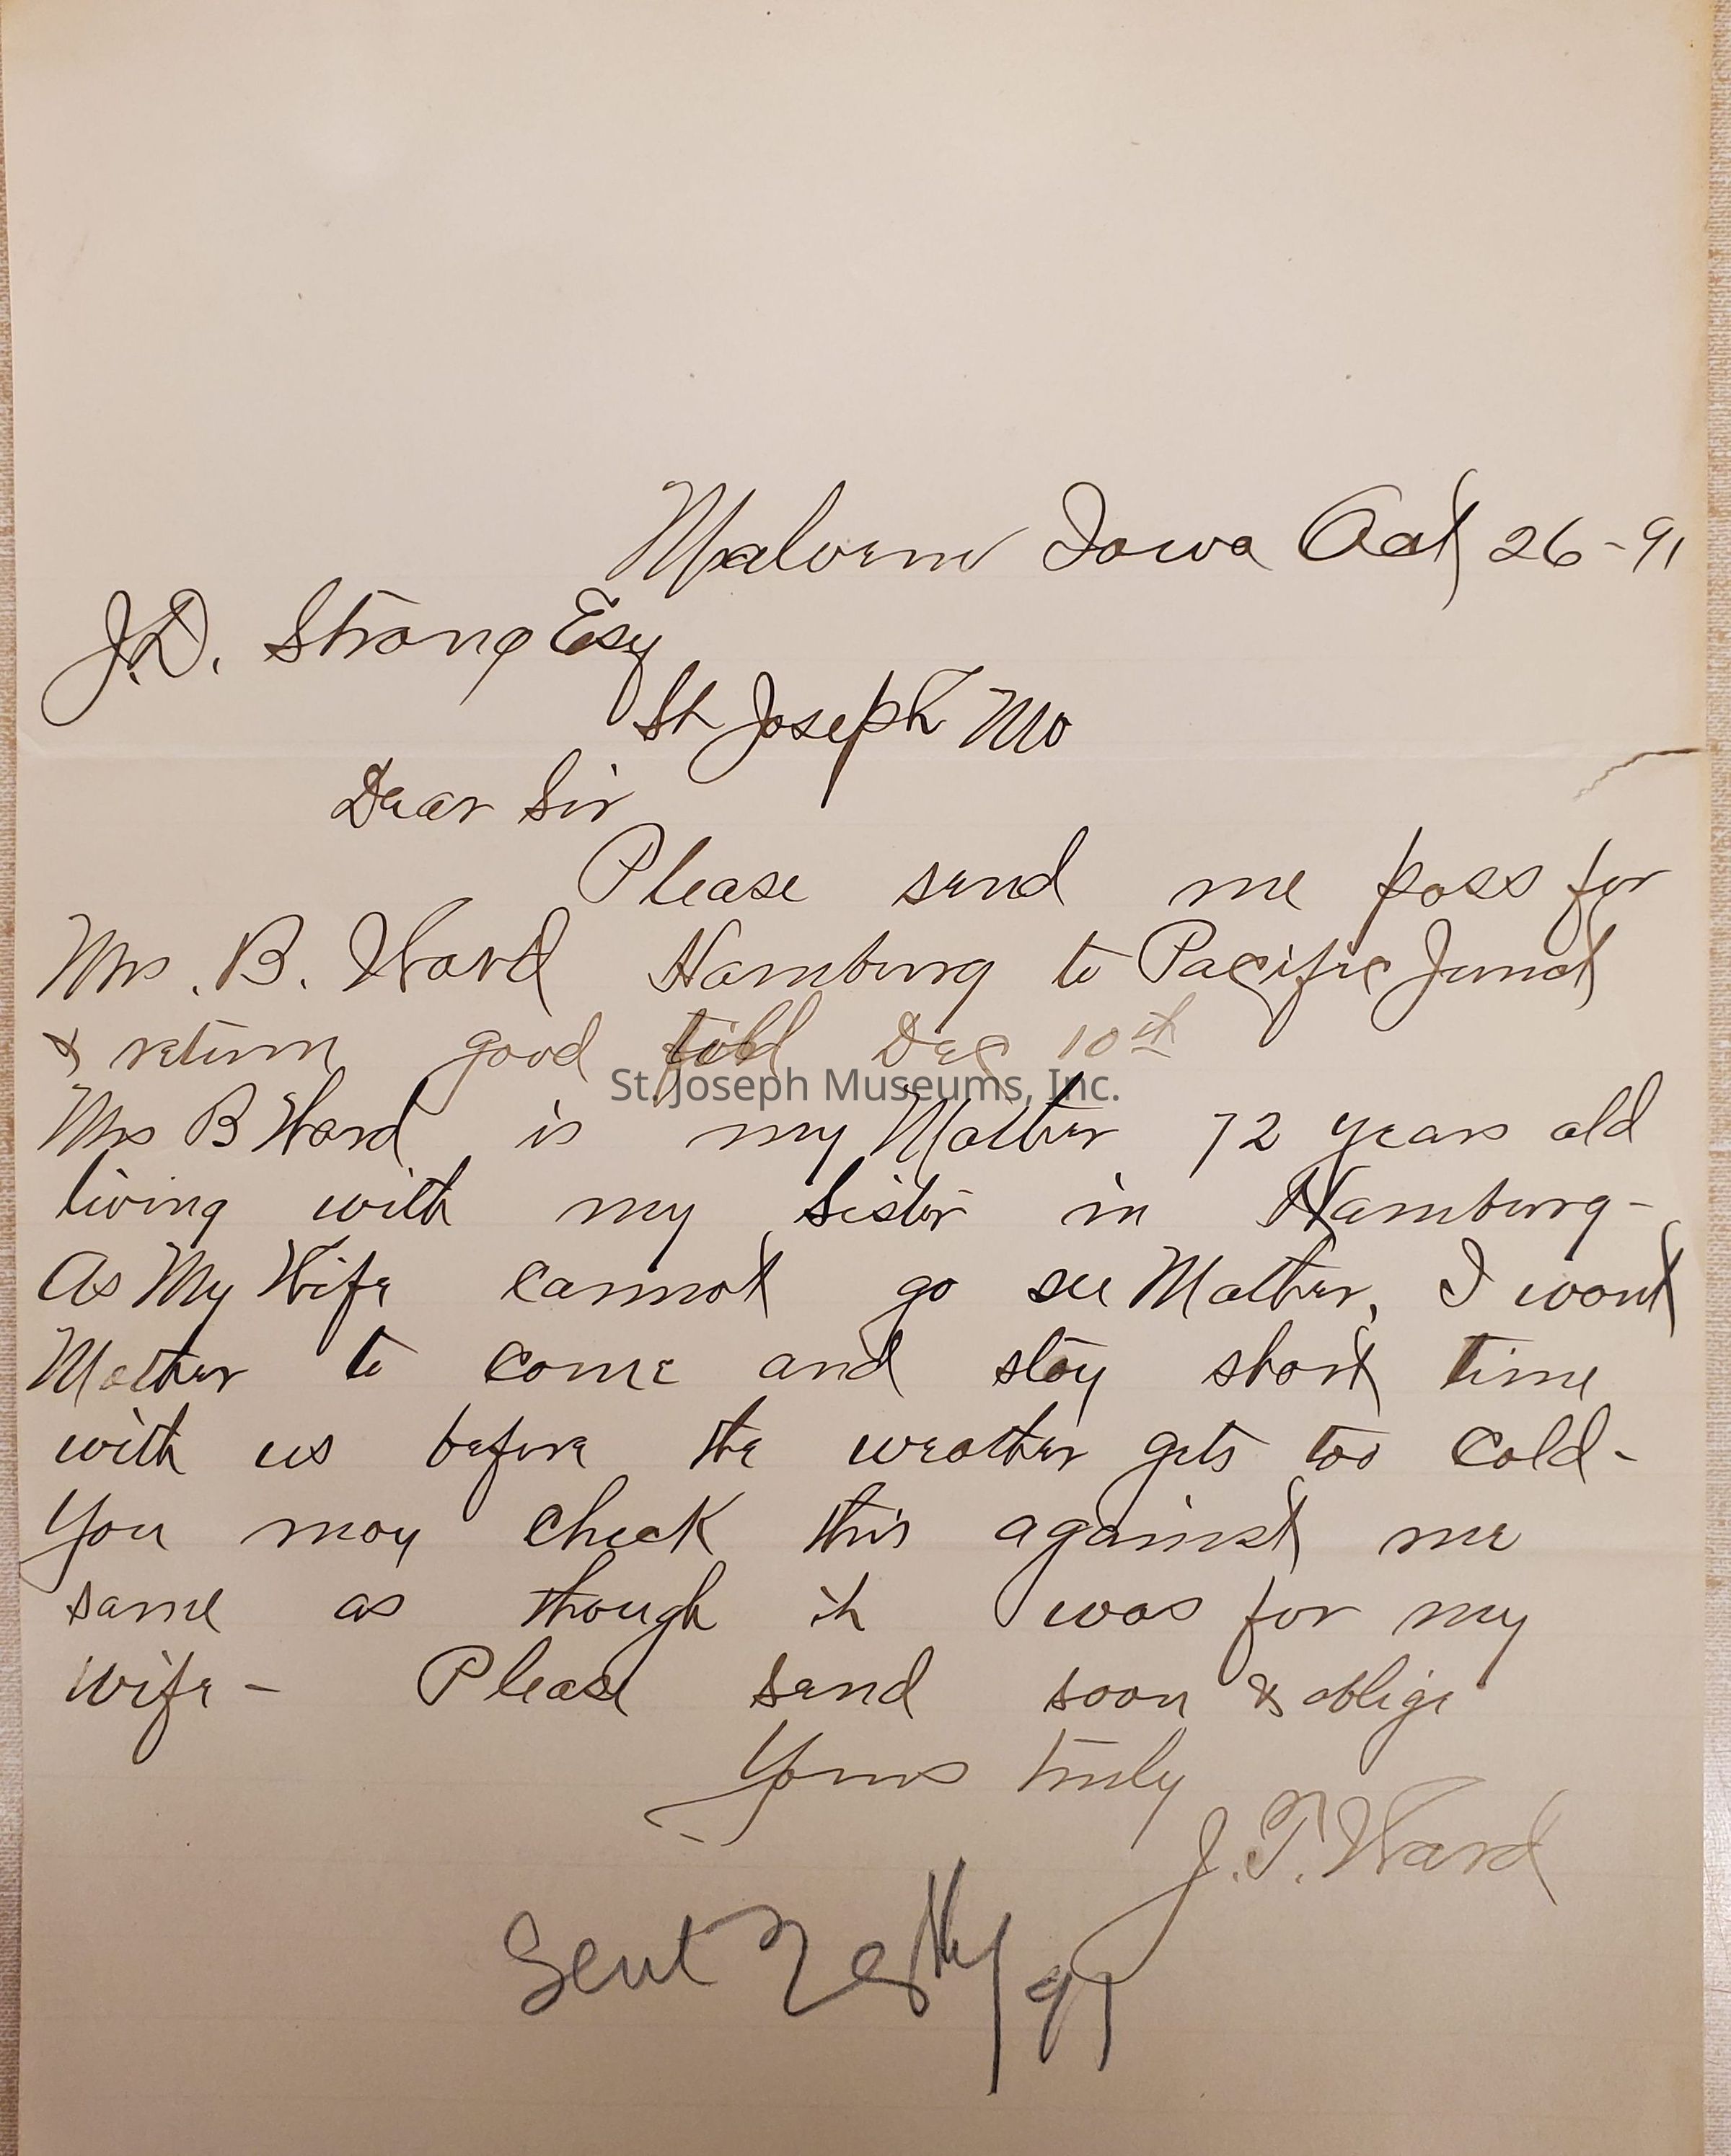 Malvern Iowa Oct 26-91
J.D. Strong Esq
St Joseph Mo
Dear Sir
Please send me pass for
Mrs. B. Ward Hamburg to Pacific Junct
& return good till Dec 10th
St. Joseph Museums, Inc.
Mrs B Ward is my Mother 72 years old
living with my sister in Hamburg-
As My Wife cannot go see Mother, I want
Mother to come and stay short time
with us before the weather gets too cold-
You may check this against me
same as though it was for my
wife- Please send soon & oblige
Yours truly
J.T. Ward
Sent 91